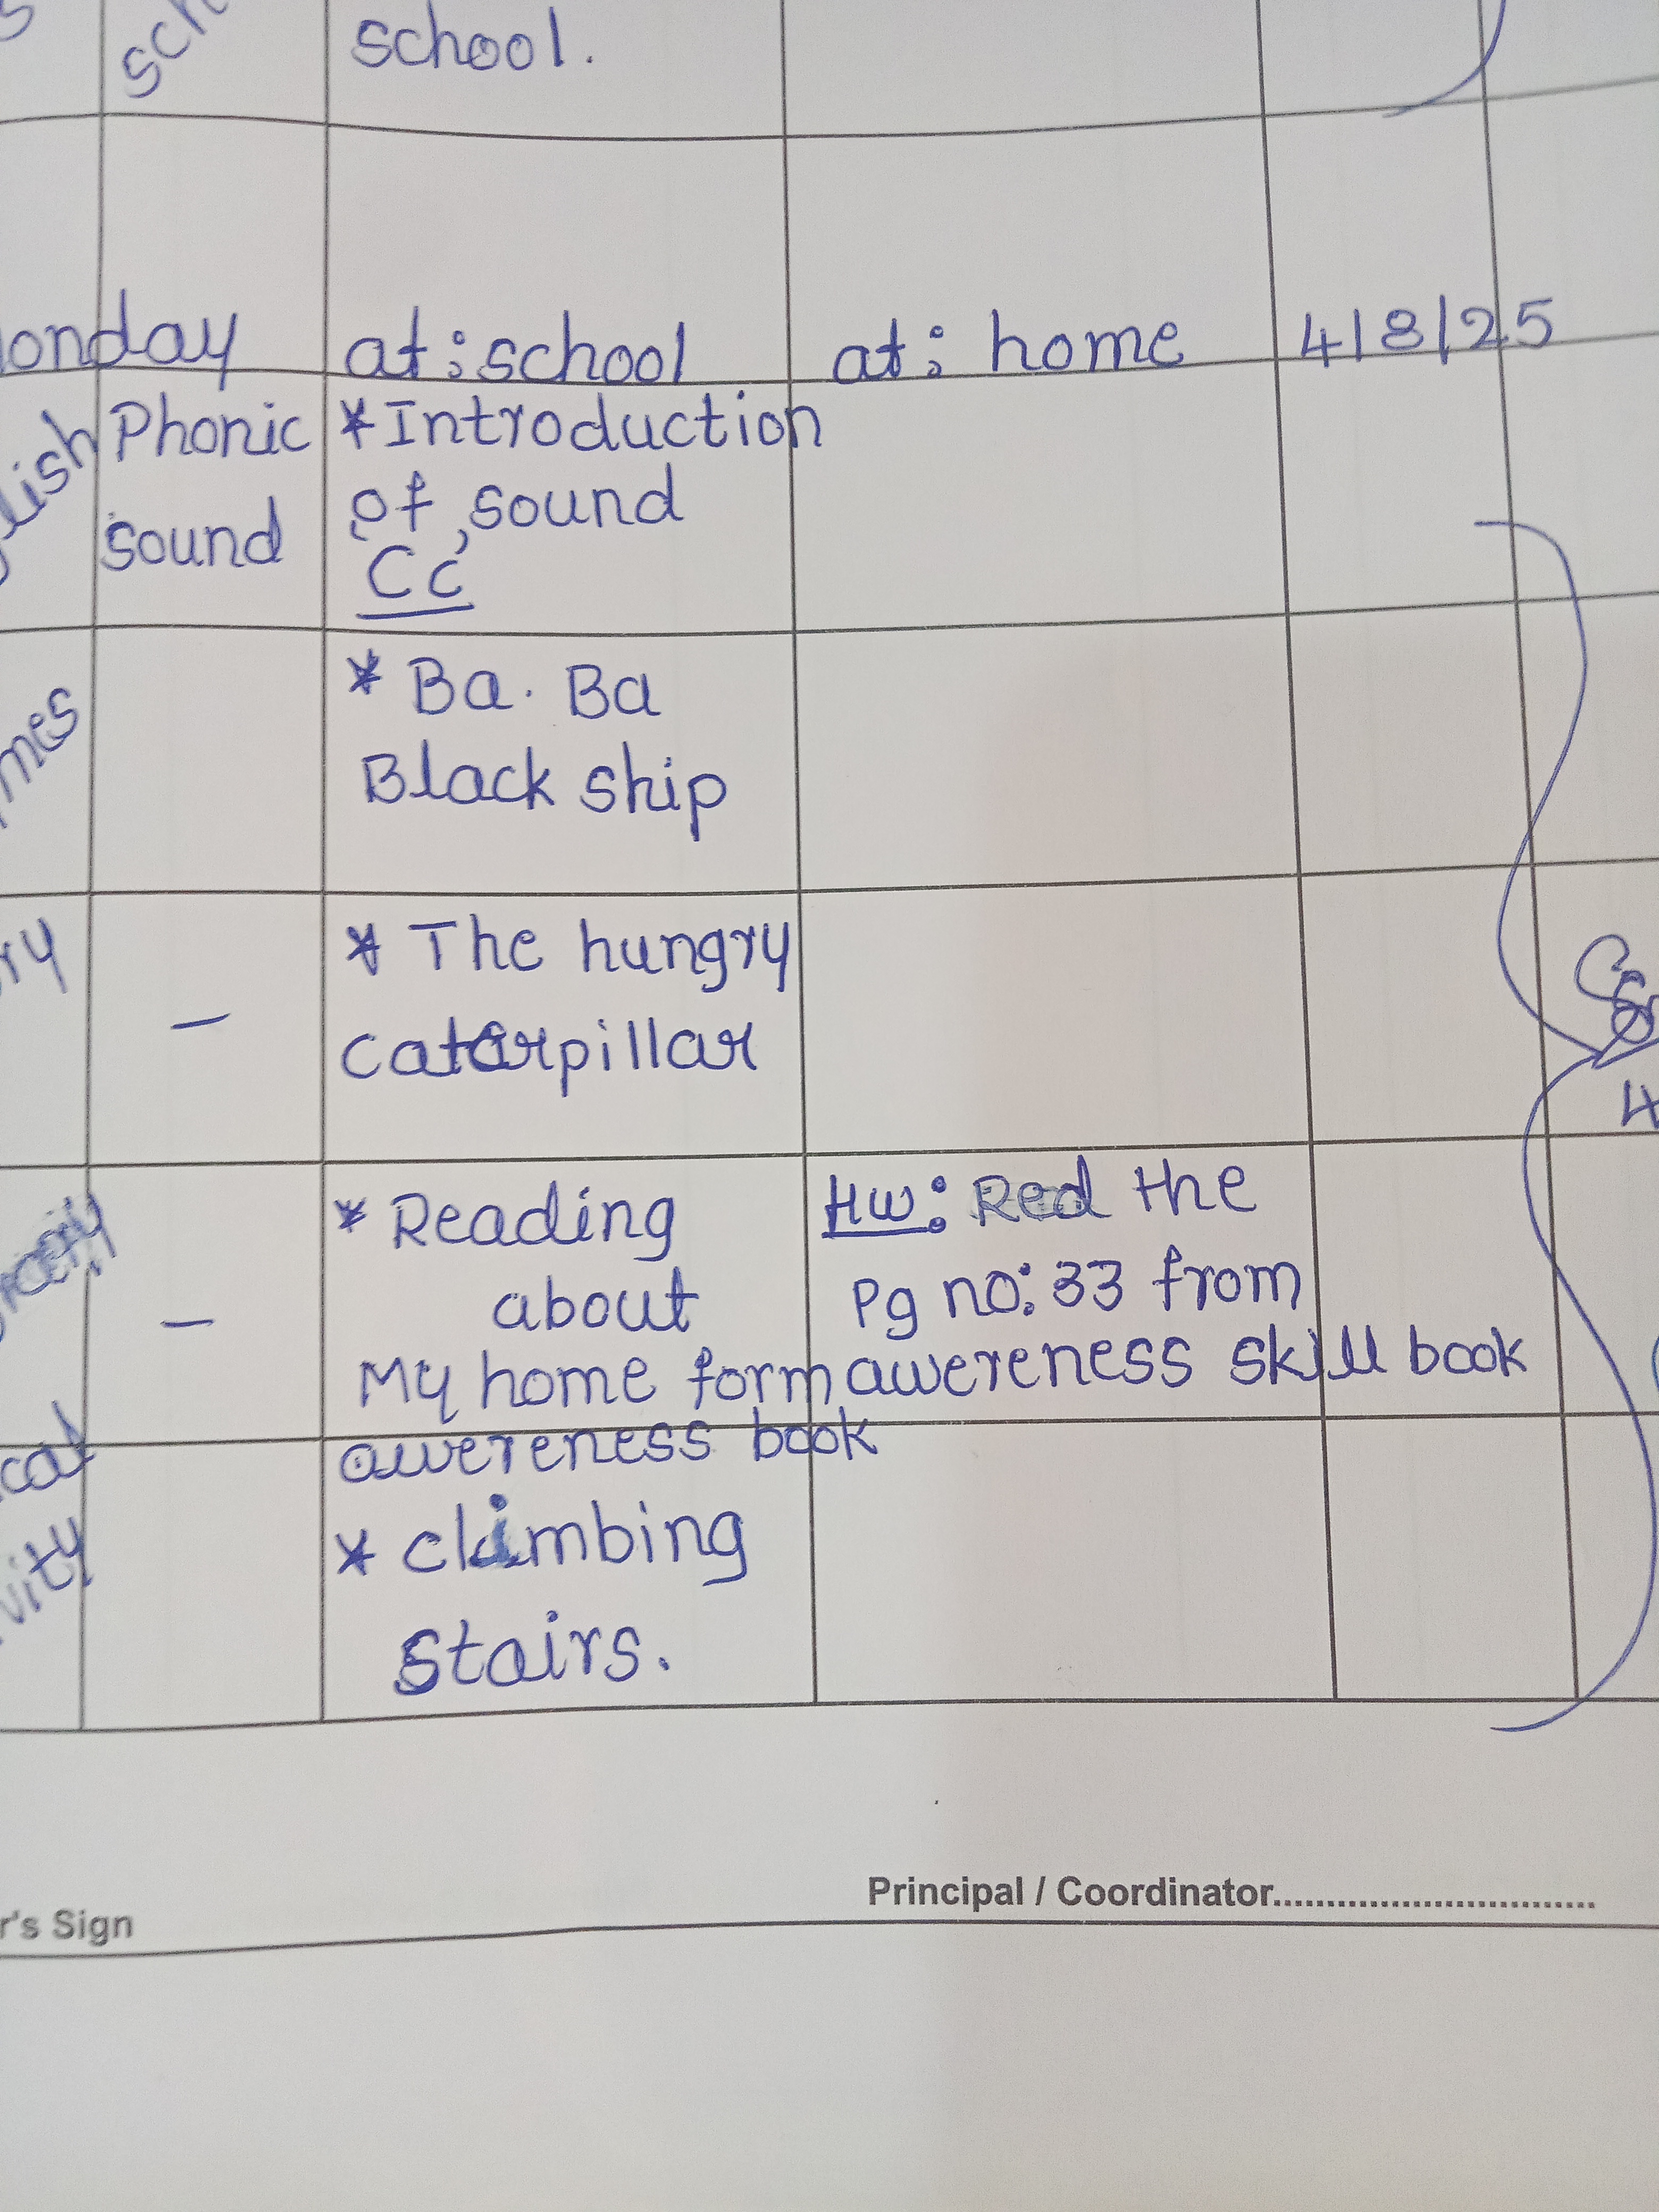 school.
onday at: school at: home 4/8/25
lish Phonic sound
*Introduction
of sound
Cc
mes
* Ba. Ba
Black ship
ry
-
* The hungry
caterpillar
-
* Reading
about
My home form
awereness book
HW: Red the
Pg no: 33 from
awereness skill book
cal
vity
* climbing
stairs.
Principal / Coordinator..............................
r's Sign